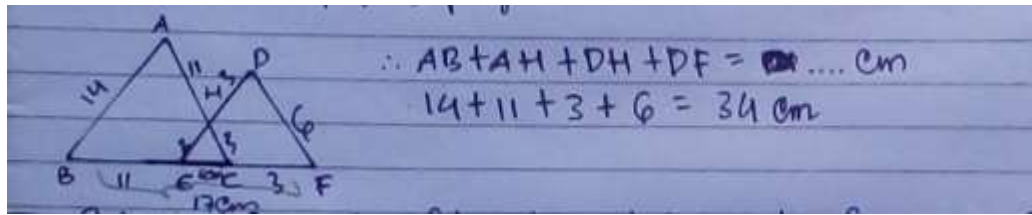 A
D
14
11
H
3
6
3
B
11
E
C
3
F
17cm
∴ AB+AH+DH+DF = .... cm
14+11+3+6 = 34 cm